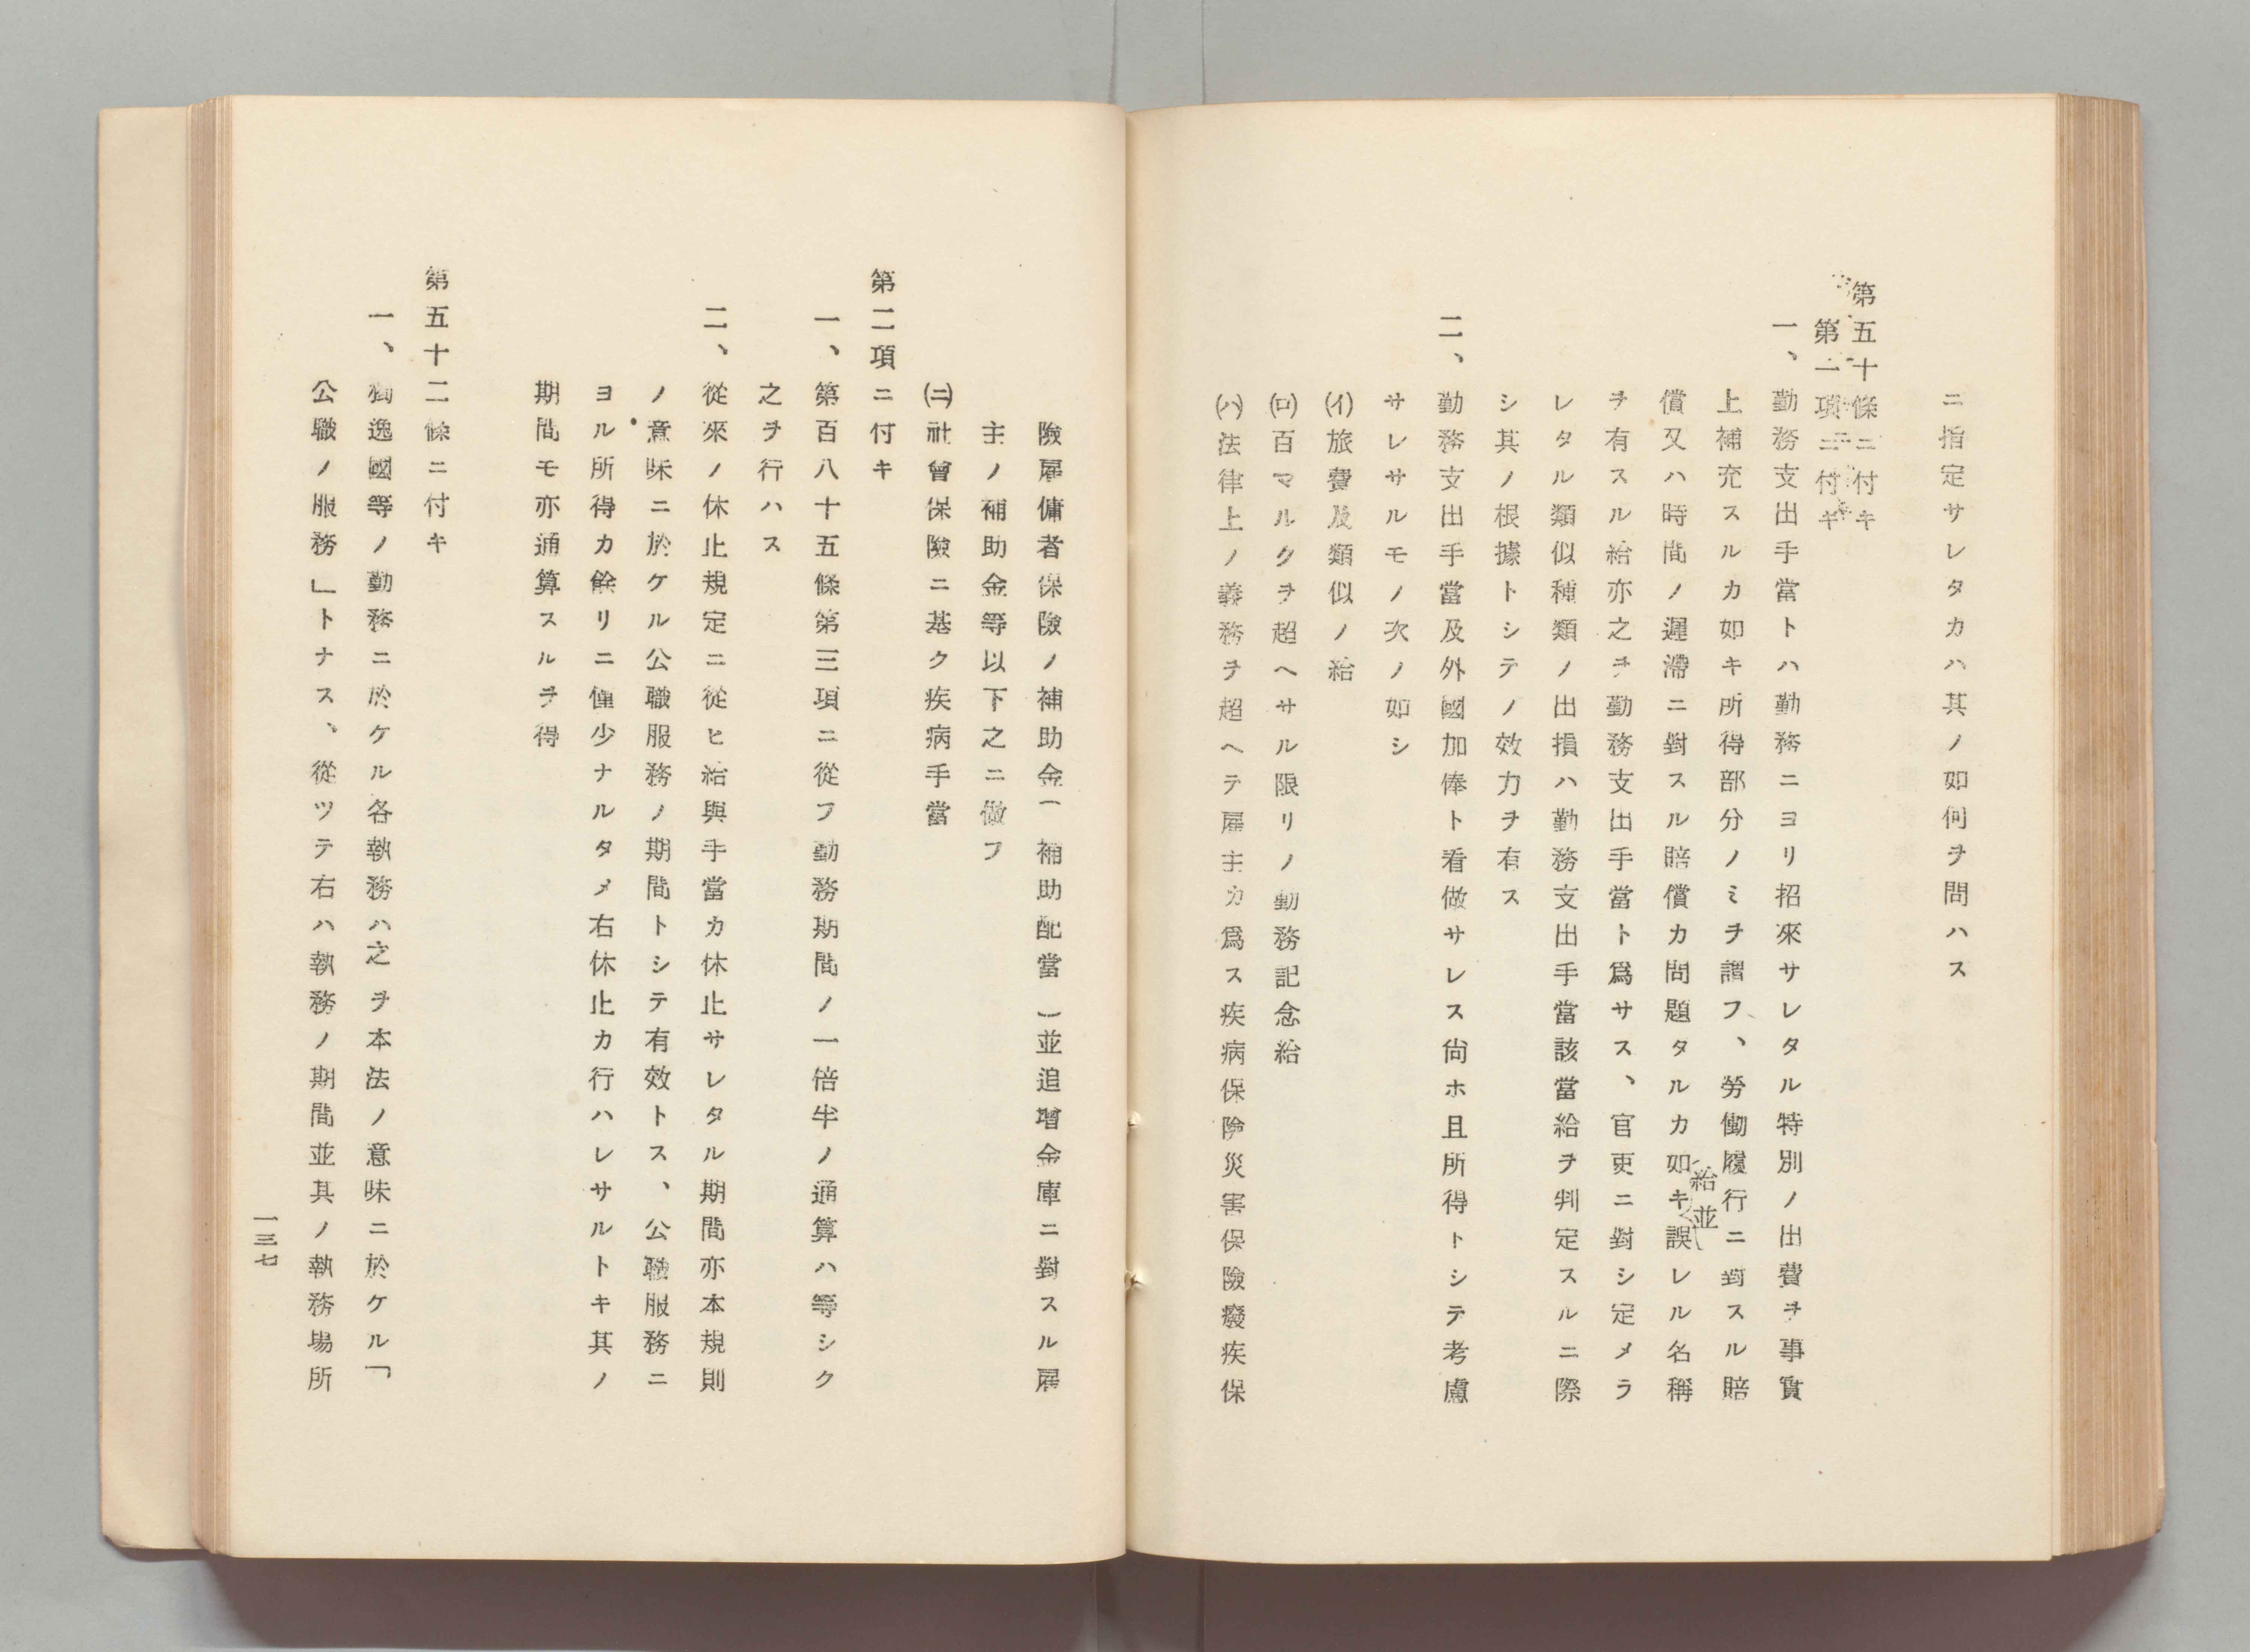 ニ指定サレタカハ其ノ如何ヲ問ハス
第五十條ニ付キ
第一項ニ付キ
一、勤務支出手當トハ勤務ニヨリ招來サレタル特別ノ出費ヲ事實
上補充スルカ如キ所得部分ノミヲ謂フ、勞働履行ニ對スル賠
償又ハ時間ノ遲滯ニ對スル賠償カ問題タルカ如キ誤レル名稱
給並
ヲ有スル給亦之ヲ勤務支出手當ト爲サス、官吏ニ對シ定メラ
レタル類似種類ノ出損ハ勤務支出手當該當給ヲ判定スルニ際
シ其ノ根據トシテノ效力ヲ有ス
二、勤務支出手當及外國加俸ト看做サレス尙ホ且所得トシテ考慮
サレサルモノ次ノ如シ
(イ)旅費及類似ノ給
(ロ)百マルクヲ超ヘサル限リノ勤務記念給
(ハ)法律上ノ義務ヲ超ヘテ雇主カ爲ス疾病保險災害保險癈疾保
險雇傭者保險ノ補助金(補助配當)並追增金庫ニ對スル雇
主ノ補助金等以下之ニ倣フ
(ニ)社會保險ニ基ク疾病手當
第二項ニ付キ
一、第百八十五條第三項ニ從フ勤務期間ノ一倍半ノ通算ハ等シク
之ヲ行ハス
二、從來ノ休止規定ニ從ヒ給與手當カ休止サレタル期間亦本規則
ノ意味ニ於ケル公職服務ノ期間トシテ有效トス、公職服務ニ
ヨル所得カ餘リニ僅少ナルタメ右休止カ行ハレサルトキ其ノ
期間モ亦通算スルヲ得
第五十二條ニ付キ
一、獨逸國等ノ勤務ニ於ケル各執務ハ之ヲ本法ノ意味ニ於ケル「
公職ノ服務」トナス、從ツテ右ハ執務ノ期間並其ノ執務場所
一三七